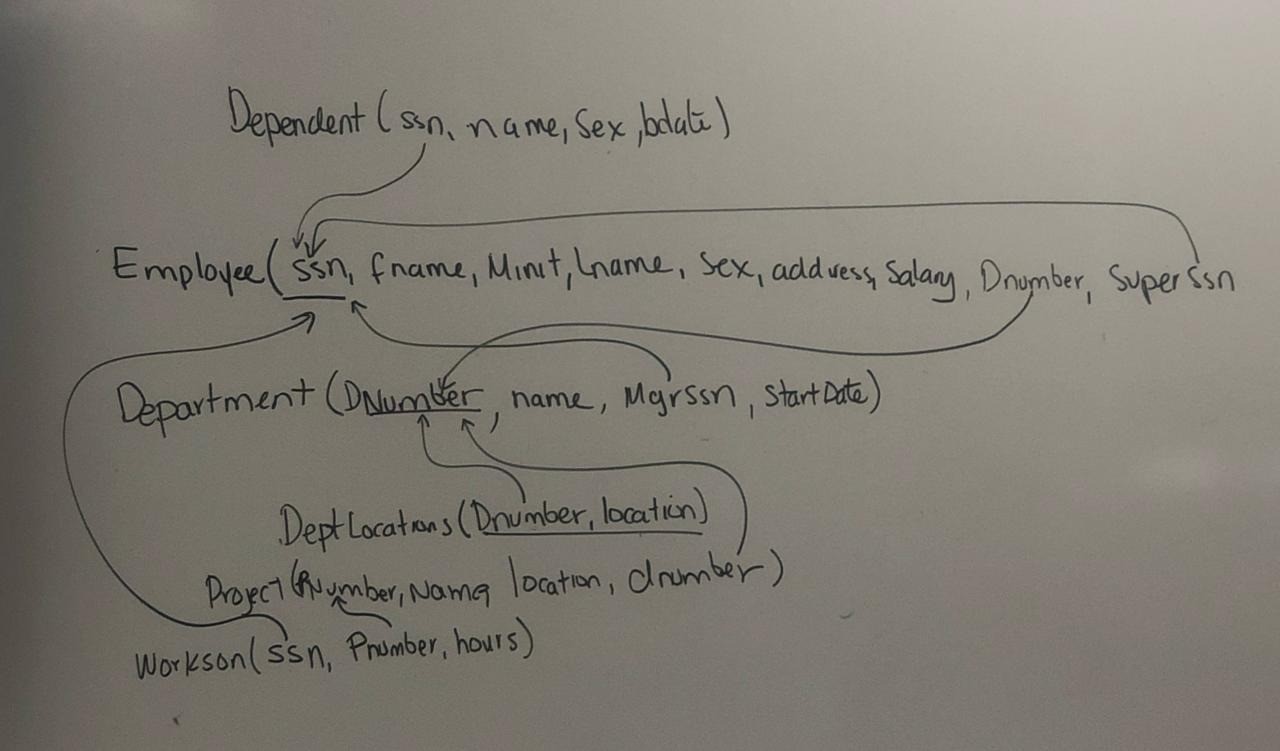 Dependent (ssn, name, Sex, bdate)
Employee (ssn, fname, Minit, Lname, Sex, address, Salary, Dnumber, SuperSsn
Department (DNumber, name, Mgrssn, StartDate)
DeptLocations (Dnumber, location)
Project (PNumber, Name, location, dnumber)
Workson (ssn, Pnumber, hours)